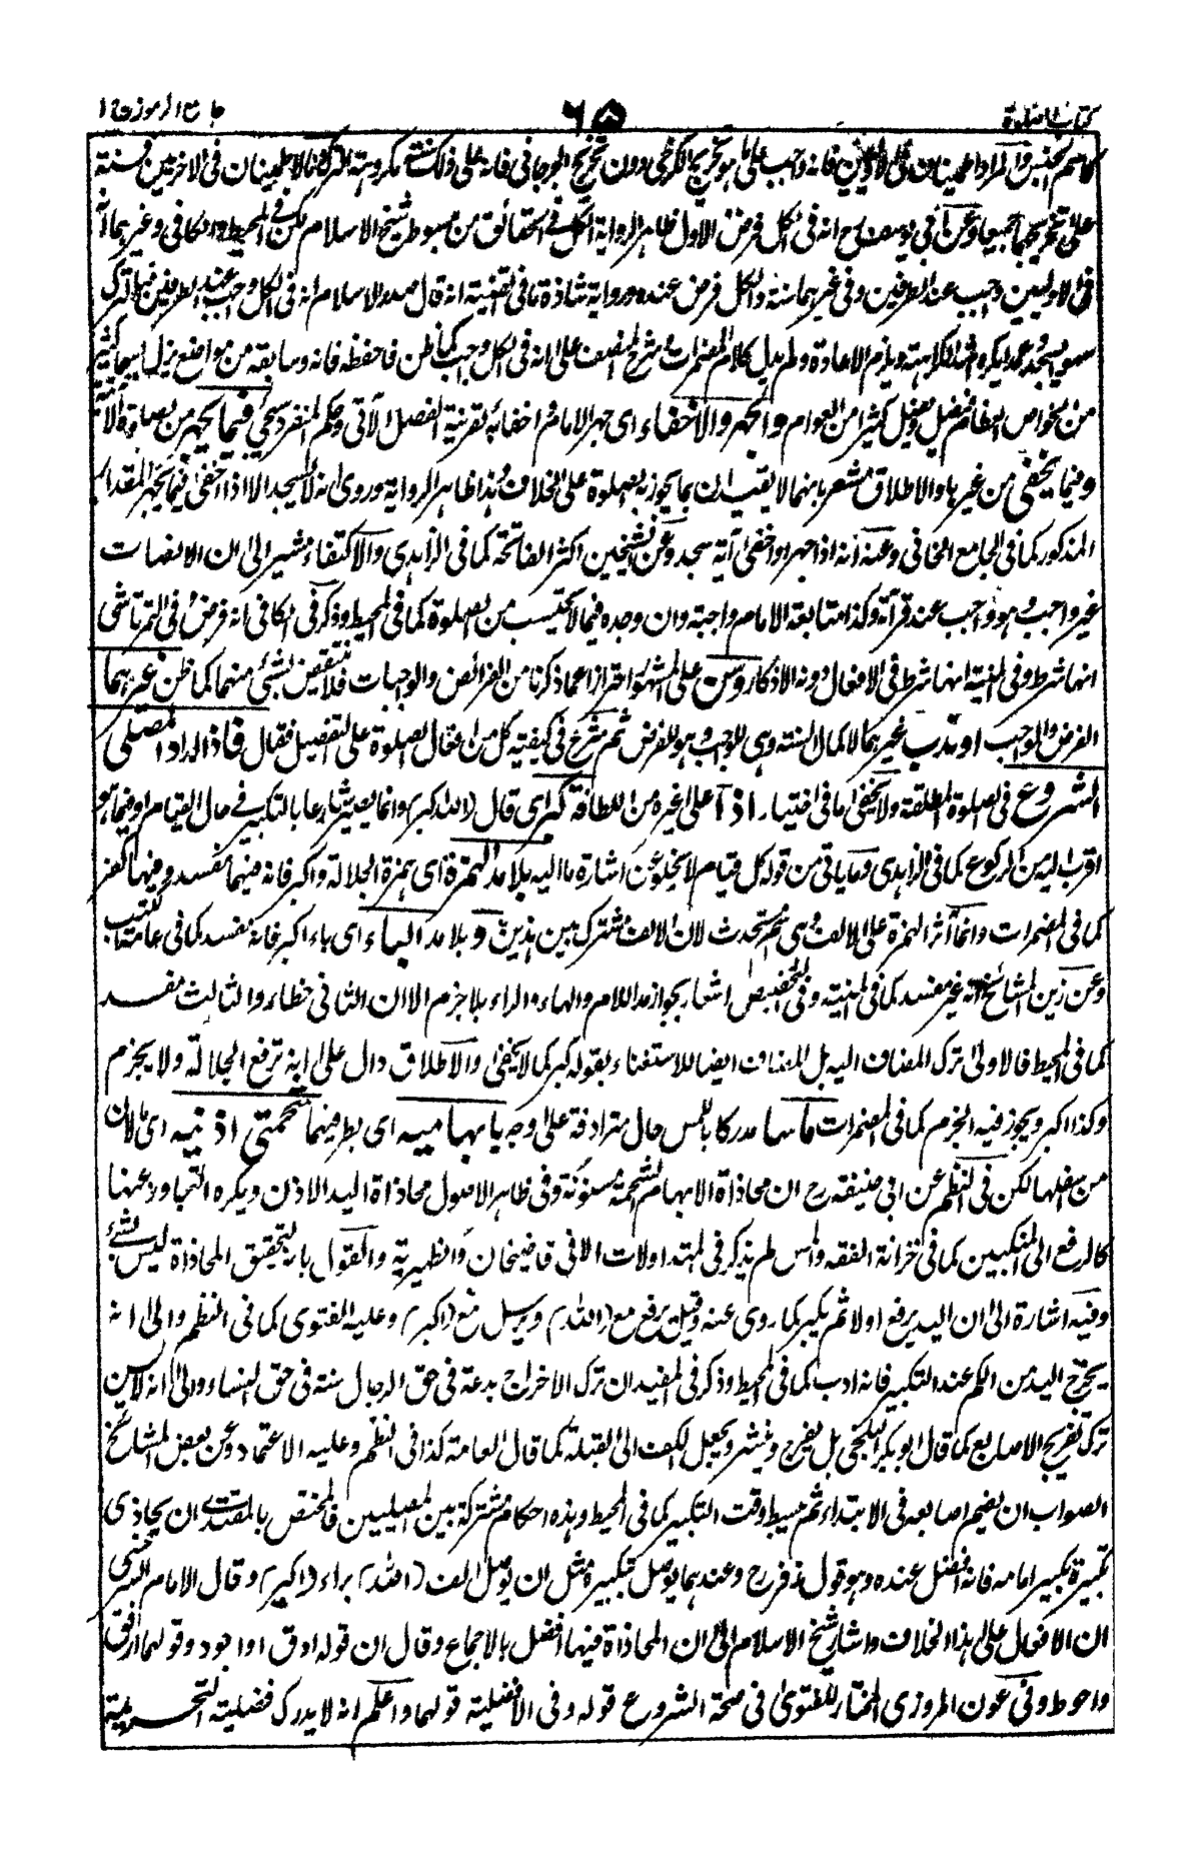 كتاب الصلوة ٦٥ جامع الرموز ج ١
كما هم الجنين والمراد اطمينان في الاوليين فانه واجب على ما هو تخريج الكرخي دون تخريج الجرجاني فانه على ذلك سنة مكروهة الترك الاطمينان في الاخرتين فسنة
على تخريجهما جميعا وعن ابي يوسف رح انه في الكل فرض الاول ظاهر الرواية الكل في الحقائق من مبسوط شيخ الاسلام لكن في المحيط والكافي وغيرهما انه
في الاوليين واجب عند الطرفين وفي غيرهما سنة والكل فرض عنده ورواية شاذة ما في القنية انه قال صدر الاسلام انه في الكل واجب عند الطرفين فبتركه
سهوا يسجد وعمدا يكره اشد الكراهة ويلزم الاعادة ولم يدل كلام المضمرات وشرح المصنف على انه في الكل واجب كما ظن فاحفظه فانه وسابقه من مواضع يزل فيهما كثير
من خواص العظام فضل بفضل كثيرا من العوام والجهر والاخفاء اي جهر الامام واخفائه بقرينة الفصل الآتي وحكم المنفرد سيجئ فيما يجهر من الصلوة الآتية
وفيما يخفى من غيرها والاطلاق مشعر بانهما لا يقيدان بما يجوز به الصلوة على الخلاف وهذا ظاهر الرواية وروى انه لا يسجد الا اذا اخفى فيما يجهر المقدار
المذكور كما في الجامع الخاني وعنه انه اذا جهر او اخفى آية سجد وعن الشيخين اكثر الفاتحة كما في الزاهدي والاكتفاء مشير الى ان الانصات
غير واجب وهو واجب عند قرآنه وكذا متابعة الامام واجبة وان وجده فيما لا يحتسب من الصلوة كما في المحيط وذكر في الكافي انه فرض وفي التمرتاشي
انها شرط وفي المنية انها شرط في الافعال دون الاذكار وسن على المشهور احترازا عما ذكرنا من الفرائض والواجبات فلا ينتقض بشئ منهما كما ظن غيرهما
الفرض والواجب او ندب غيرهما لاكمال السنة وهي للواجب وهو للفرض ثم شرع في كيفية كل من افعال الصلوة على التفصيل فقال فاذا اراد المصلي
الشروع في الصلوة المطلقة ولا يخفى ما في اختيار اذا على غيره من اللطافة كبر اي قال (الله اكبر) وانما يصير شارعا بالتكبير في حال القيام او فيما هو
اقرب اليه من الركوع كما في الزاهدي وما ياتي من قوله كل قيام لا يخلو عن اشارة ما اليه بلا مد الهمزة اي همزة الجلالة واكبر فانه فيهما مفسد وفيها كفر
كما في المضمرات وانما آثر الهمزة على الالف وهي اسم مستحدث لان الالف مشترك بين هذين وبلا مد الباء اي باء اكبر فانه مفسد كما في عامة الكتب
وعن زين المشائخ انه غير مفسد كما في المنية وفي التخصيص اشعار بجواز مد اللام والهاء والراء بلا جزم الا ان الثاني خطاء والثالث مفسد
كما في المحيط فالاولى ترك المضاف اليه بل المضاف ايضا للاستغناء بقوله كبر كما لا يخفى والاطلاق دال على انه ترفع الجلالة ولا يجزم
وكذا اكبر ويجوز فيه الجزم كما في المضمرات ماسا مدركا باللمس حال مترادفة على وجه بابهاميه اي بطرفيهما شحمتي اذنيه اي مالان
من سفلها لكن في النظم عن ابي حنيفة رح ان محاذاة الابهام الشحمة مسنونة وفي ظاهر الاصول محاذاة اليد الاذن ويكره التجاوز عنها
كالرفع الى المنكبين كما في خزانة الفقه والمس لم يذكر في المتداولات الا في قاضيخان والظهيرية والقول بانه لتحقيق المحاذاة ليس بشئ
وفيه اشارة الى ان اليد يرفع اولا ثم يكبر كما روى عنه وقيل يرفع مع (الله) ويرسل مع (اكبر) وعليه الفتوى كما في النظم والى انه
يخرج اليد من الكم عند التكبير فانه ادب كما في المحيط وذكر في المفيد ان ترك الاخراج بدعة في حق الرجال سنة في حق النساء والى انه لا يسن
ترك تفريج الاصابع كما قال ابو بكر البلخي بل يفرج وينشر ويجعل الكف الى القبلة كما قال العامة كذا في النظم وعليه الاعتماد وعن بعض المشائخ
الصواب ان يضم اصابعه في الابتداء ثم يبسط وقت التكبير كما في المحيط وهذه احكام مشتركة بين المصليين فالمختص بالمقتدي ان يحاذي
تكبيره تكبير امامه فانه افضل عنده وهو قول زفر رح وعندهما يوصل تكبيره مثل ان يوصل الف (الله) براء (اكبر) وقال الامام السرخسي
ان الافعال على هذا الخلاف واشار شيخ الاسلام الى ان المحاذاة فيها افضل بالاجماع وقال ان قوله ادق واجود وقولهما ارفق
واحوط وفي عون المروزي المختار للفتوى في صحة الشروع قوله وفي الافضلية قولهما واعلم انه لا يدرك فضيلة التحريمة